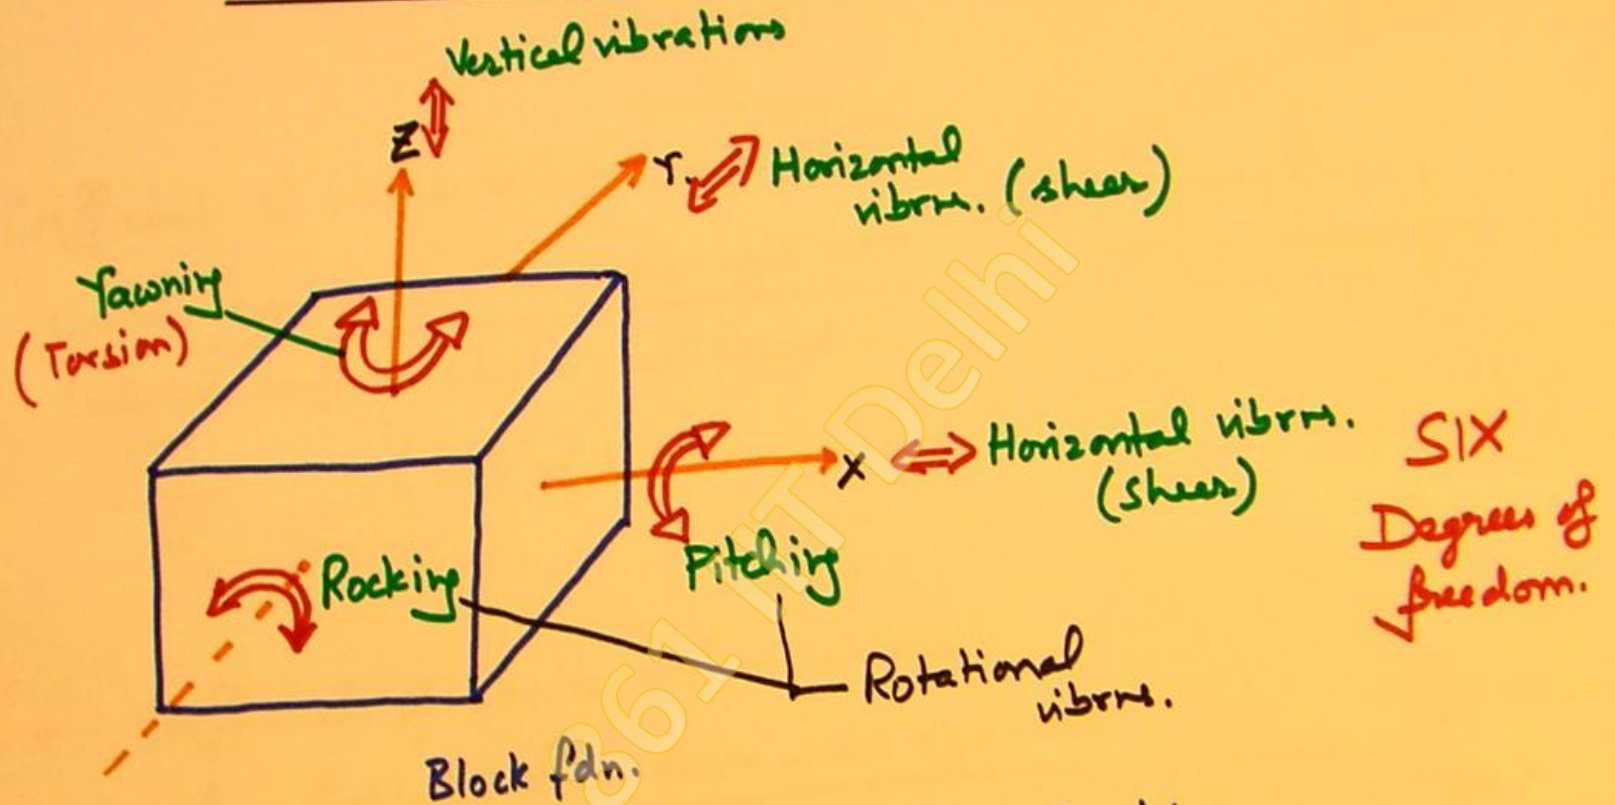 Vertical vibrations
Z
Y.
Horizontal
vibrns. (shear)
Yawning
(Torsion)
X
Horizontal vibrns.
(Shear)
SIX
Degrees of
freedom.
Pitching
Rocking
Rotational
vibrns.
Block fdn.
861 IIT Delhi